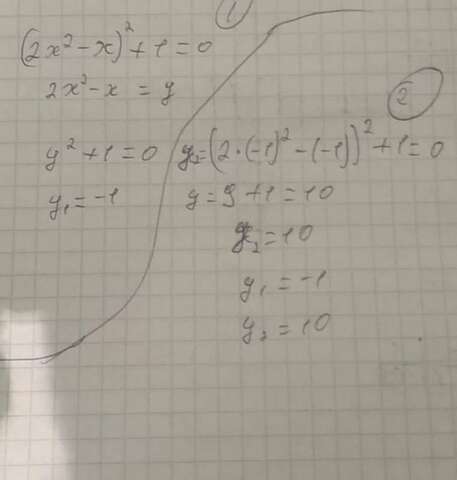 1
(2x² - x)² + 1 = 0
2x² - x = y
y² + 1 = 0
y₁ = -1
2
y₂ = (2·(-1)² - (-1))² + 1 = 0
y = 9 + 1 = 10
y₂ = 10
y₁ = -1
y₂ = 10